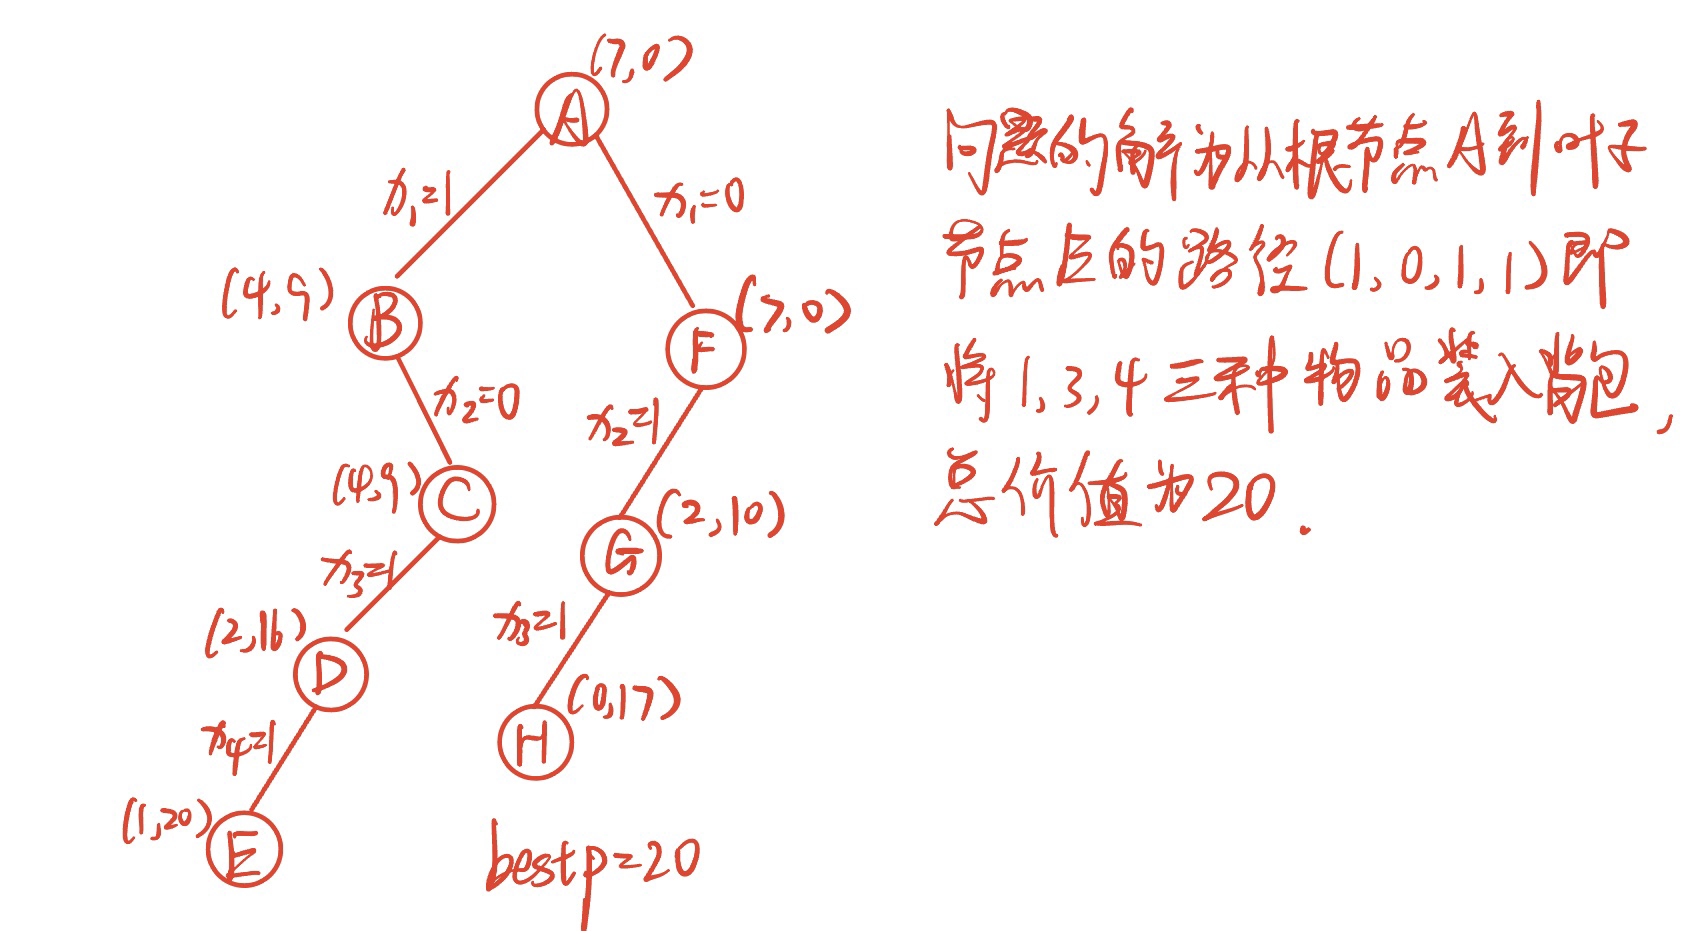 (7,0)
A
x₁=1
x₁=0
(4,9)
B
(7,0)
F
x₂=0
x₂=1
(4,9)
C
(2,10)
G
x₃=1
x₃=1
(2,16)
D
(0,17)
H
x₄=1
(1,20)
E
bestp=20
问题的解为从根节点A到叶子
节点E的路径(1,0,1,1)即
将1,3,4三种物品装入背包,
总价值为20.